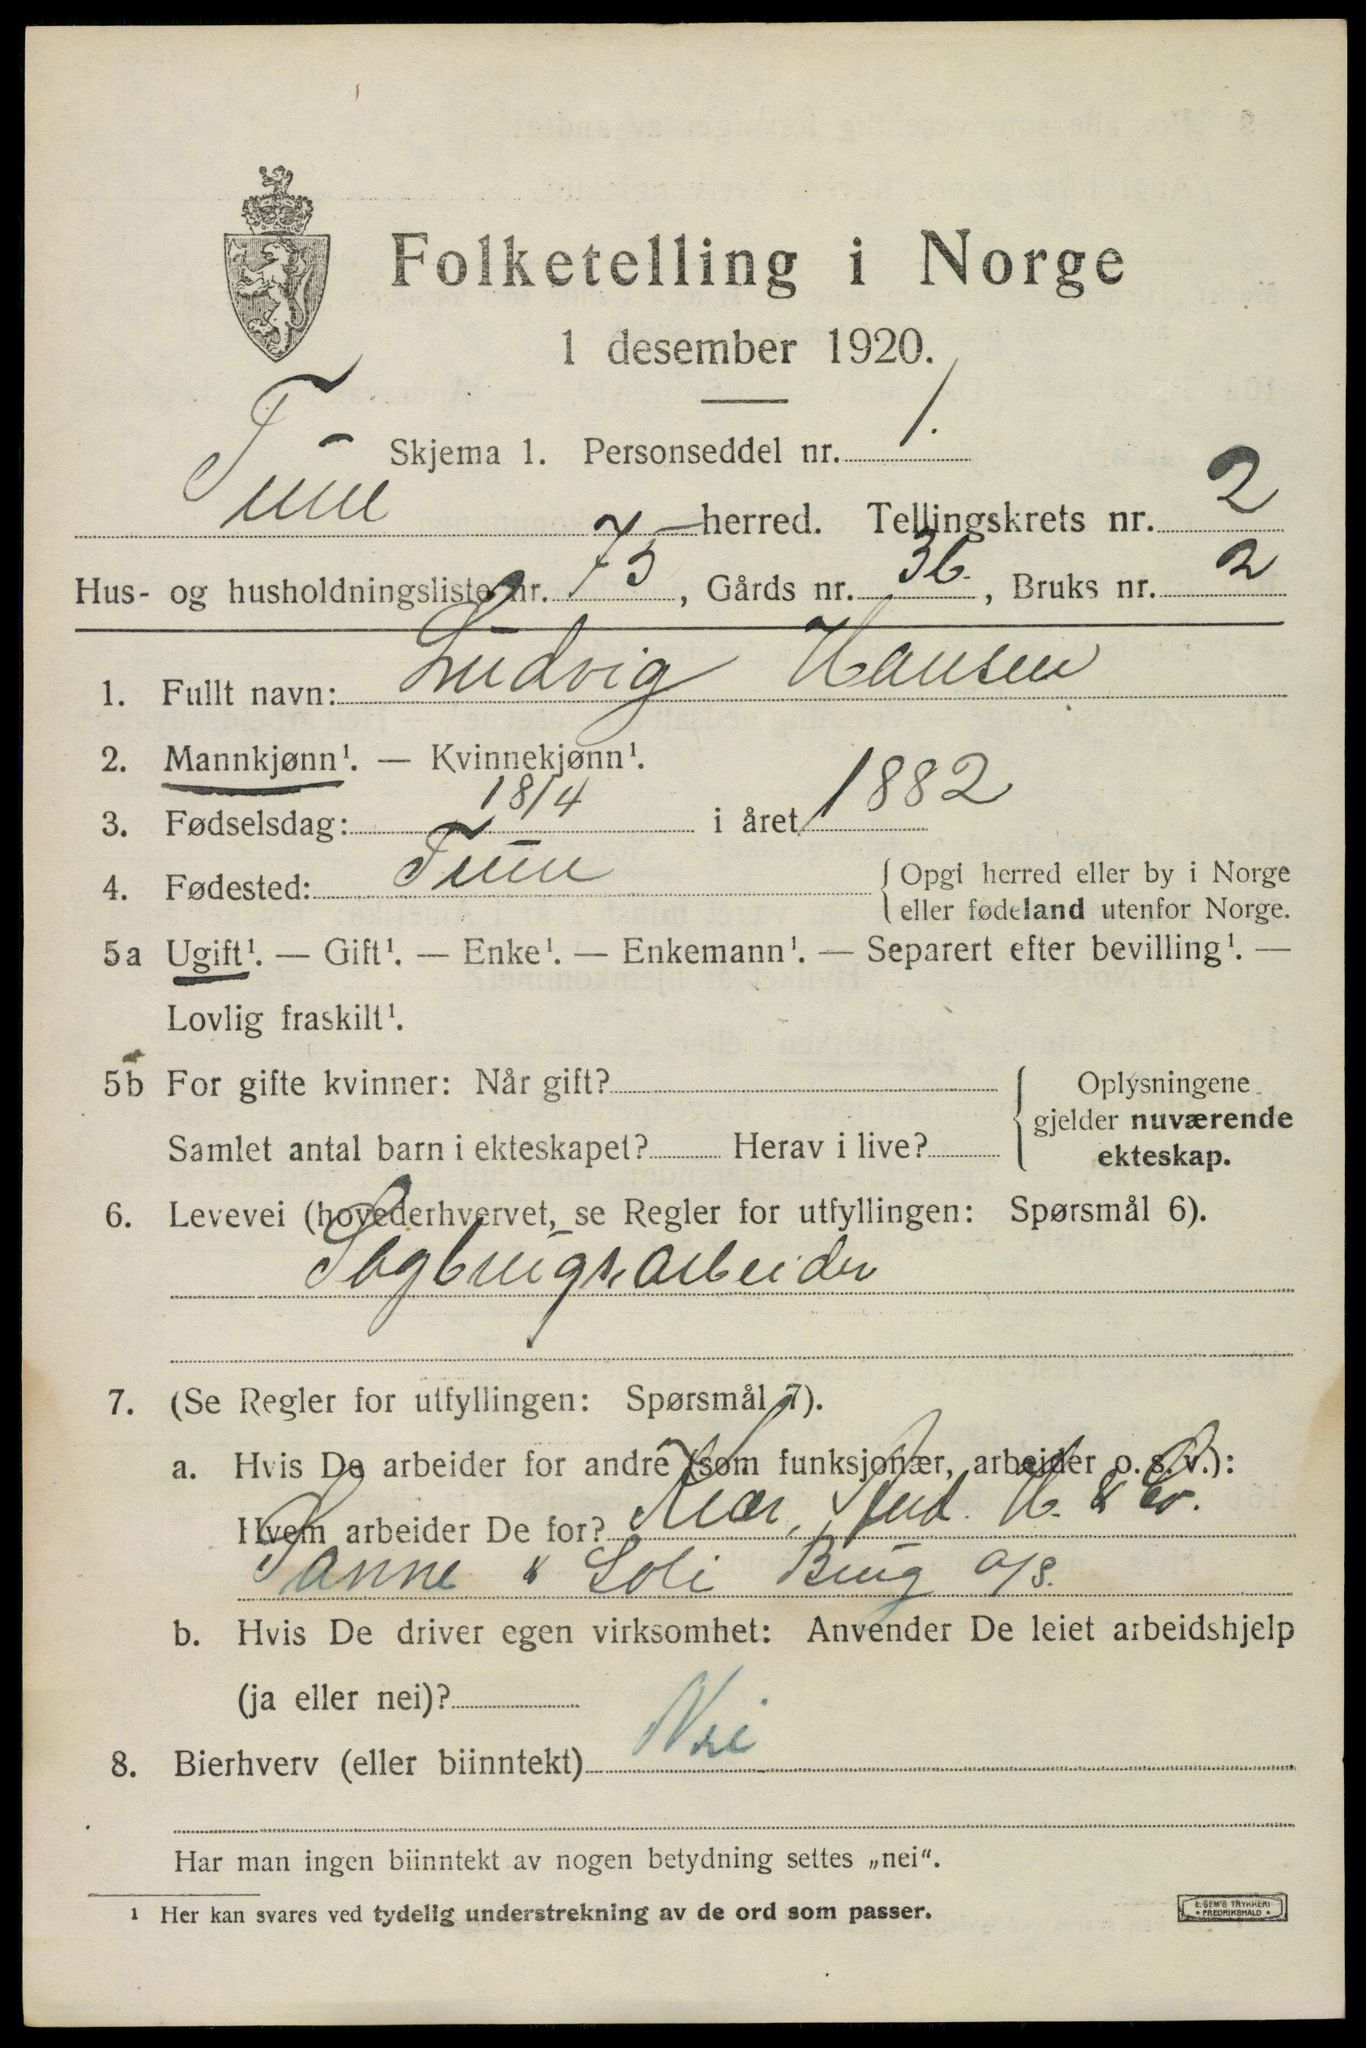 Folketelling i Norge
1 desember 1920.
Skjema 1. Personseddel nr. 1.
Tune herred. Tellingskrets nr. 2
Hus- og husholdningsliste nr. 75, Gårds nr. 36, Bruks nr. 2
1. Fullt navn: Ludvig Hansen
2. Mannkjønn¹. — Kvinnekjønn¹.
3. Fødselsdag: 18/4 i året 1882
4. Fødested: Tune { Opgi herred eller by i Norge
eller fødeland utenfor Norge.
5a Ugift¹. — Gift¹. — Enke¹. — Enkemann¹. — Separert efter bevilling¹. —
Lovlig fraskilt¹.
5b For gifte kvinner: Når gift? { Oplysningene
gjelder nuværende
Samlet antal barn i ekteskapet? Herav i live?
ekteskap.
6. Levevei (hovederhvervet, se Regler for utfyllingen: Spørsmål 6).
Sagbrugsarbeider
7. (Se Regler for utfyllingen: Spørsmål 7).
a. Hvis De arbeider for andre (som funksjonær, arbeider o. s. v.):
Hvem arbeider De for? Kiær, And. H. & Co.
Sanne & Soli Brug A/S.
b. Hvis De driver egen virksomhet: Anvender De leiet arbeidshjelp
(ja eller nei)?
8. Bierhverv (eller biinntekt) Nei
Har man ingen biinntekt av nogen betydning settes „nei“.
¹ Her kan svares ved tydelig understrekning av de ord som passer.
E. SEM'S TRYKKERI
• FREDRIKSHALD •